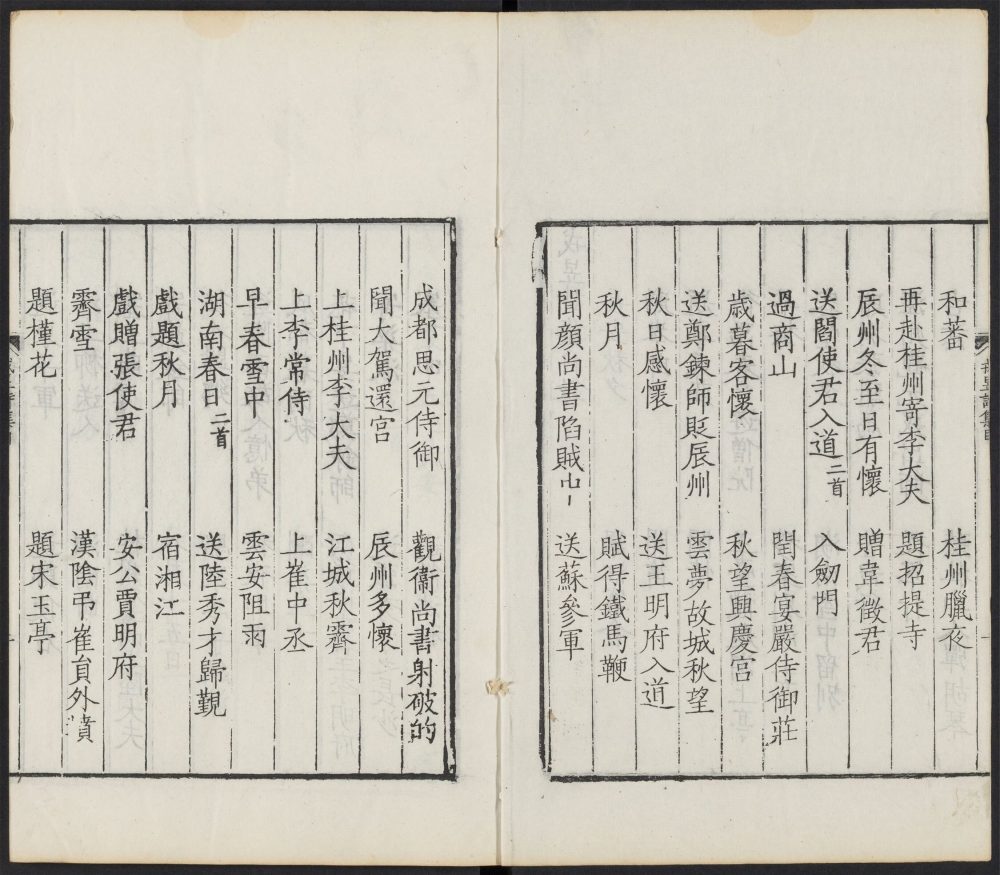 和蕃　桂州臘夜
再赴桂州寄李大夫　題招提寺
辰州冬至日有懷　贈韋徵君
送閻使君入道二首　入劒門
過商山　閏春宴嚴侍御莊
歲暮客懷　秋望興慶宮
送鄭鍊師貶辰州　雲夢故城秋望
秋日感懷　送王明府入道
秋月　賦得鐵馬鞭
聞顔尚書陷賊中　送蘇參軍
成都思元侍御　觀衞尚書射破的
聞大駕還宮　辰州多懷
上桂州李大夫　江城秋霽
上李常侍　上崔中丞
早春雪中　雲安阻雨
湖南春日二首　送陸秀才歸覲
戲題秋月　宿湘江
戲贈張使君　安公賈明府
霽雪　漢陰弔崔員外墳
題槿花　題宋玉亭